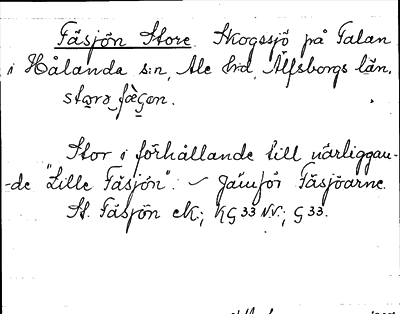 Fäsjön Store. Skogssjö på Falan
i Hålanda s:n, Ale hd, Älfsborgs län.
Stor i förhållande till närliggan-
-de "Lille Fäsjön". – Jämför Fäsjöarne.
St. Fäsjön ek.; KG 33 NV.; G 33.